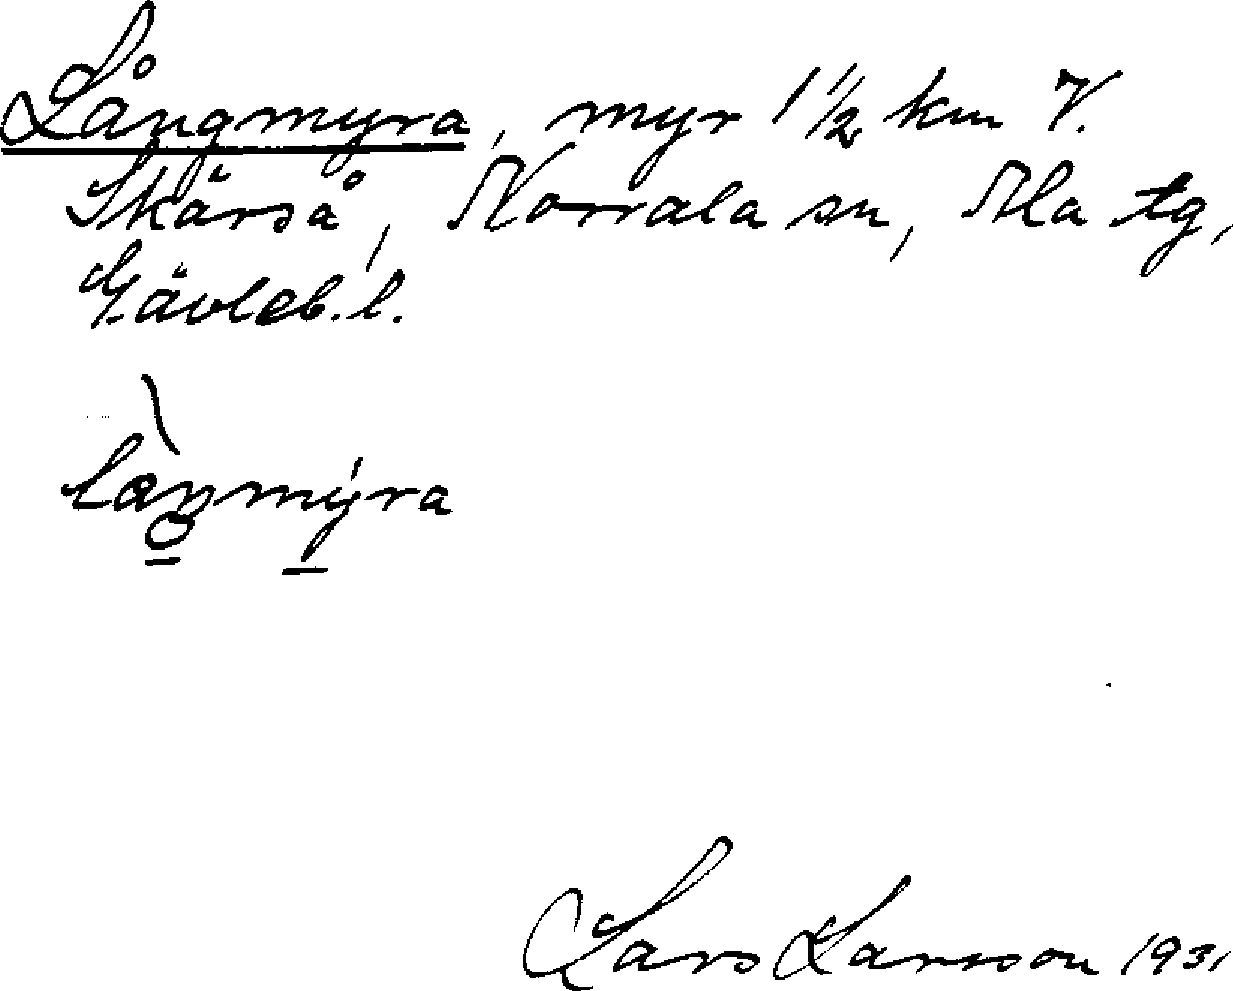 Långmyra, myr 1 ½ km V.
Skärså, Norrala sn, Ala tg,
Gävleb. l.
laŋmýra
Lars Larsson 1931